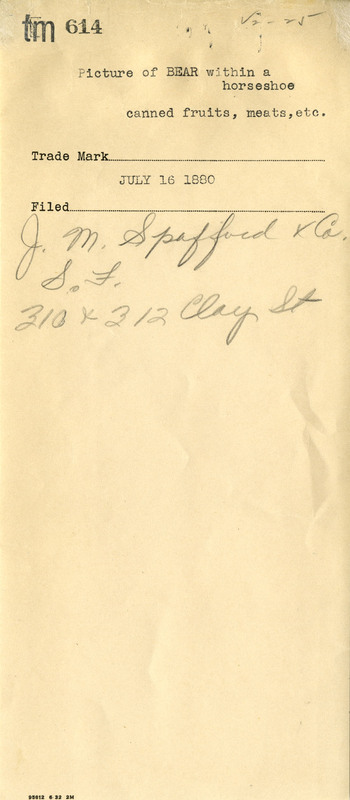 tm 614
Picture of BEAR within a
horseshoe
canned fruits, meats,etc.
Trade Mark
JULY 16 1880
Filed
J. M. Spafford & Co.
S. F.
310 & 312 Clay St
93612 6-32 2M